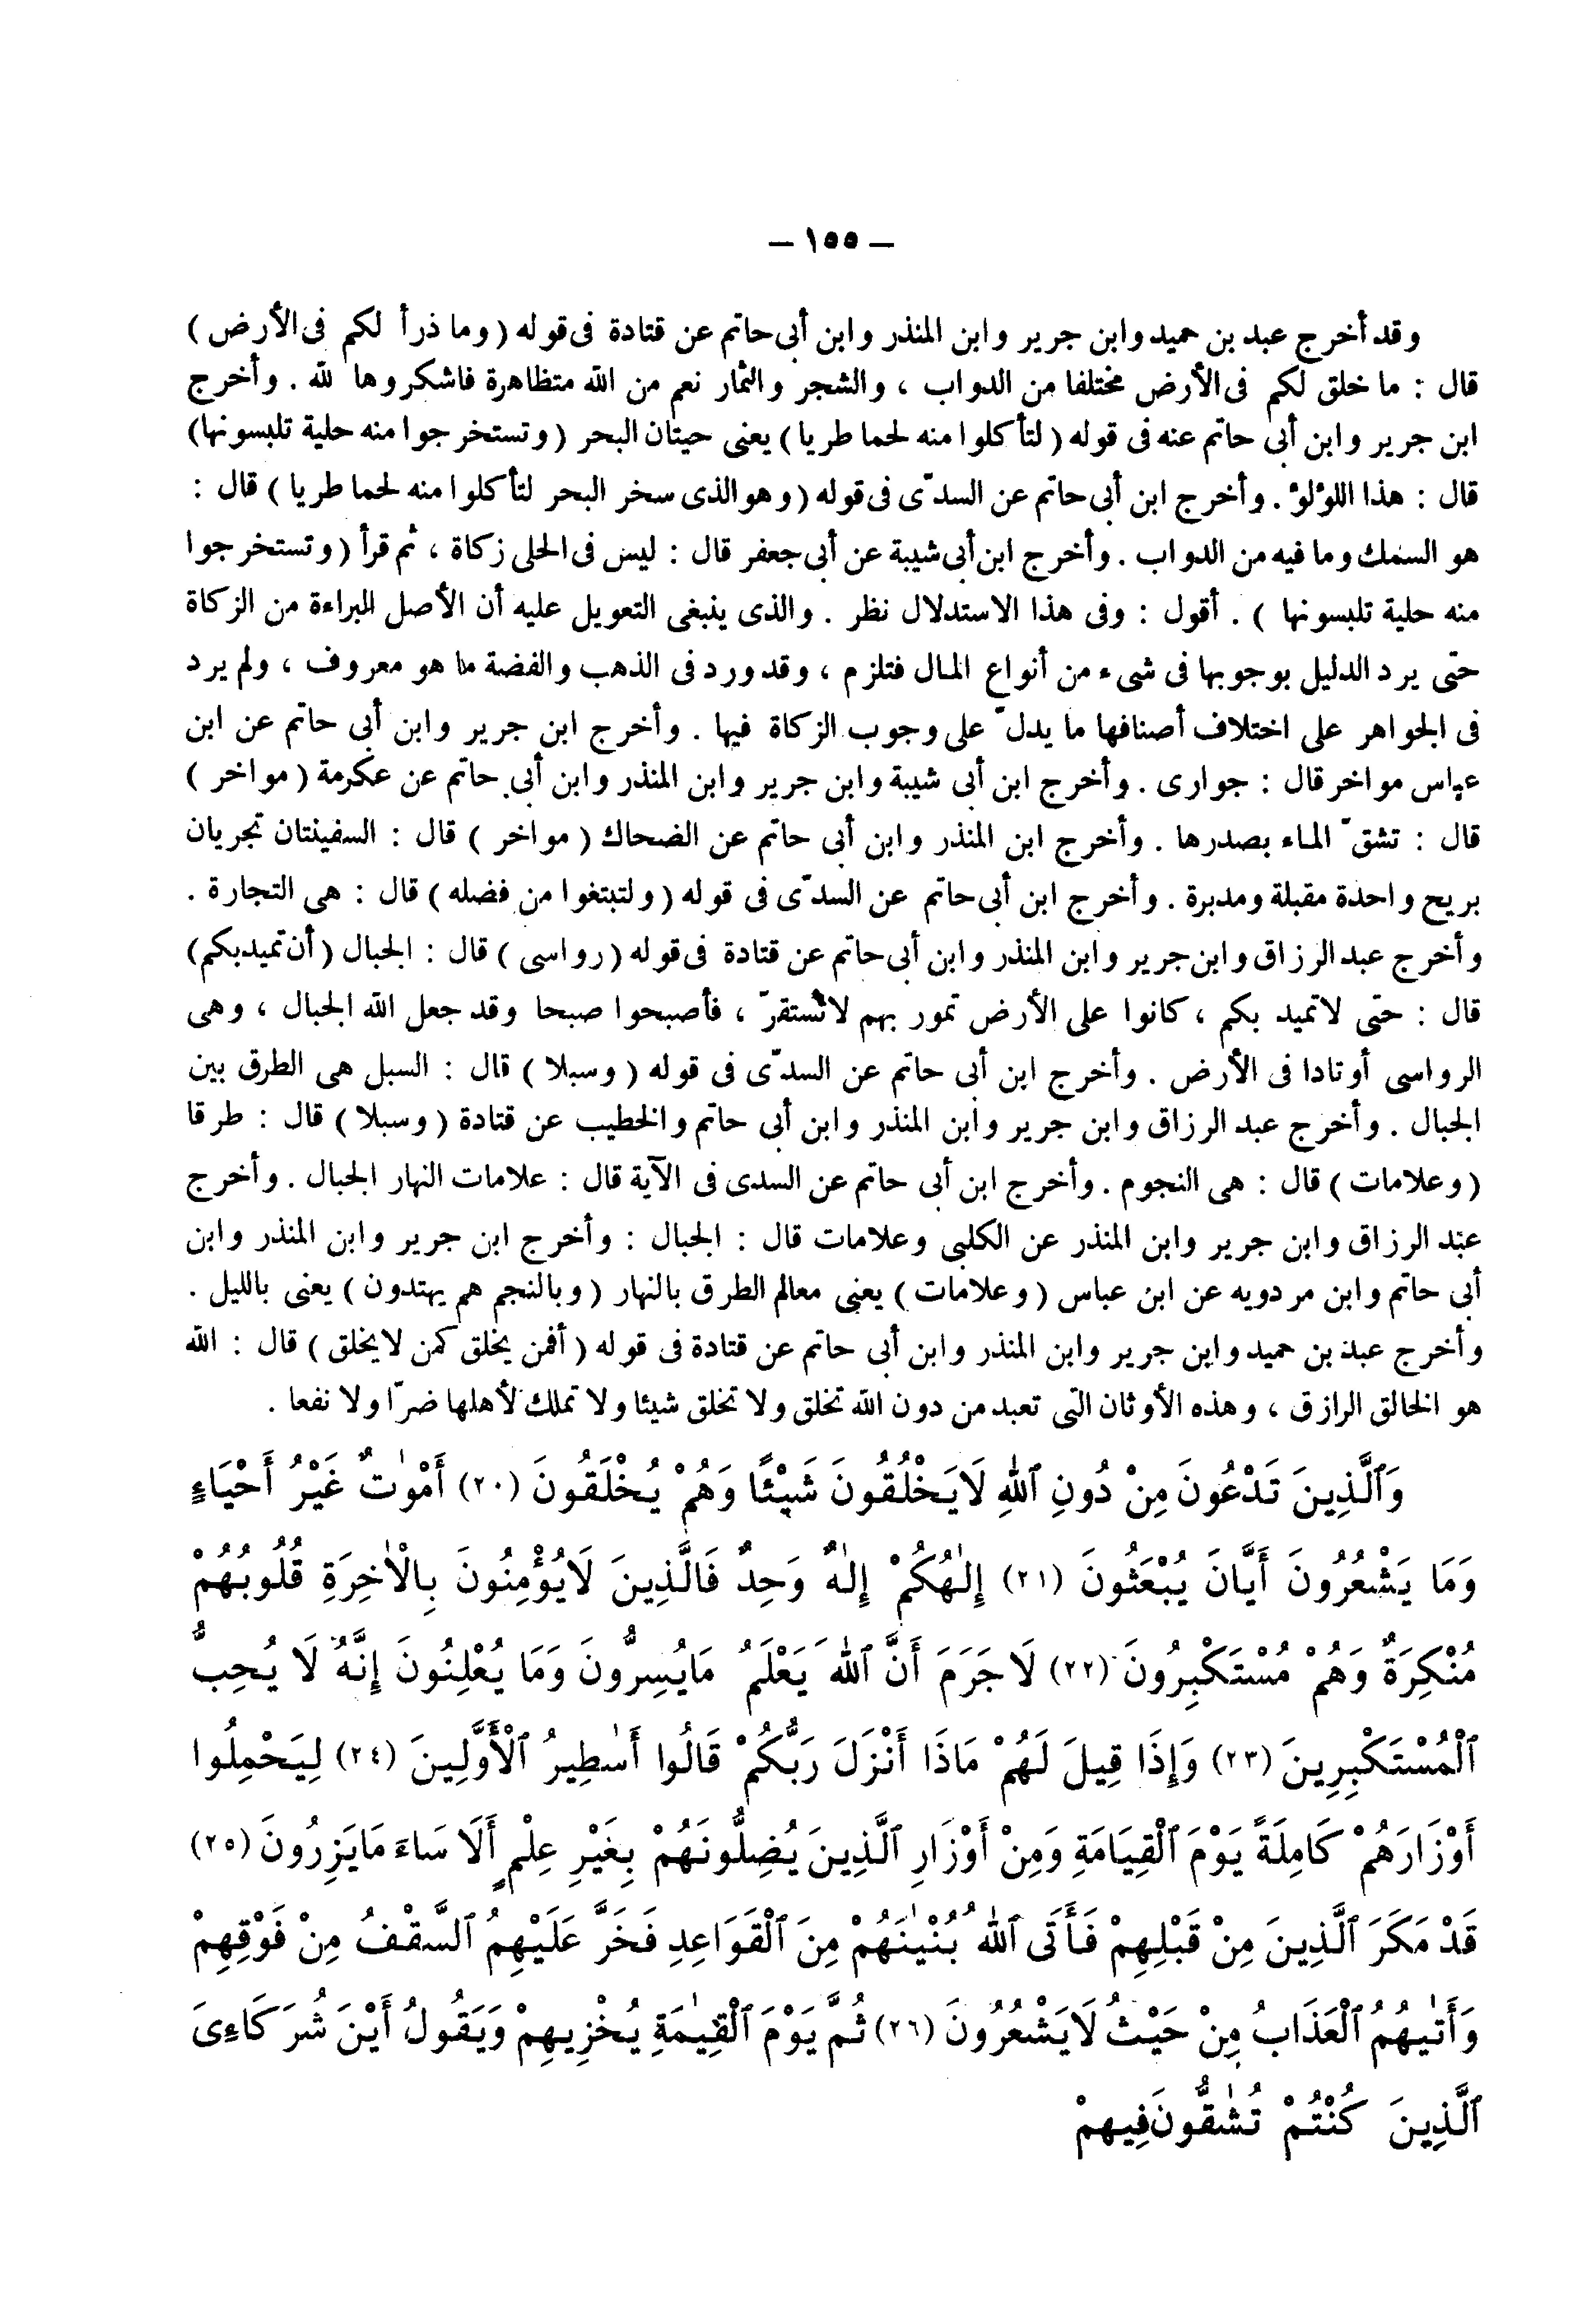 — ١٥٥ —
وقد أخرج عبد بن حميد وابن جرير وابن المنذر وابن أبى حاتم عن قتادة فى قوله ( وما ذرأ لكم فى الأرض )
قال : ما خلق لكم فى الأرض مختلفا من الدواب ، والشجر والثمار نعم من الله متظاهرة فاشكروها لله . وأخرج
ابن جرير وابن أبى حاتم عنه فى قوله ( لتأكلوا منه لحما طريا ) يعنى حيتان البحر ( وتستخرجوا منه حلية تلبسونها )
قال : هذا اللؤلؤ . وأخرج ابن أبى حاتم عن السدّى فى قوله ( وهو الذى سخر البحر لتأكلوا منه لحما طريا ) قال :
هو السمك وما فيه من الدواب . وأخرج ابن أبى شيبة عن أبى جعفر قال : ليس فى الحلى زكاة ، ثم قرأ ( وتستخرجوا
منه حلية تلبسونها ) . أقول : وفى هذا الاستدلال نظر . والذى ينبغى التعويل عليه أن الأصل البراءة من الزكاة
حتى يرد الدليل بوجوبها فى شىء من أنواع المال فتلزم ، وقد ورد فى الذهب والفضة ما هو معروف ، ولم يرد
فى الجواهر على اختلاف أصنافها ما يدلّ على وجوب الزكاة فيها . وأخرج ابن جرير وابن أبى حاتم عن ابن
عباس مواخر قال : جوارى . وأخرج ابن أبى شيبة وابن جرير وابن المنذر وابن أبى حاتم عن عكرمة ( مواخر )
قال : تشقّ الماء بصدرها . وأخرج ابن المنذر وابن أبى حاتم عن الضحاك ( مواخر ) قال : السفينتان تجريان
بريح واحدة مقبلة ومدبرة . وأخرج ابن أبى حاتم عن السدّى فى قوله ( ولتبتغوا من فضله ) قال : هى التجارة .
وأخرج عبد الرزاق وابن جرير وابن المنذر وابن أبى حاتم عن قتادة فى قوله ( رواسى ) قال : الجبال ( أن تميد بكم )
قال : حتى لا تميد بكم ، كانوا على الأرض تمور بهم لا تستقرّ ، فأصبحوا صبحا وقد جعل الله الجبال ، وهى
الرواسى أوتادا فى الأرض . وأخرج ابن أبى حاتم عن السدّى فى قوله ( وسبلا ) قال : السبل هى الطرق بين
الجبال . وأخرج عبد الرزاق وابن جرير وابن المنذر وابن أبى حاتم والخطيب عن قتادة ( وسبلا ) قال : طرقا
( وعلامات ) قال : هى النجوم . وأخرج ابن أبى حاتم عن السدى فى الآية قال : علامات النهار الجبال . وأخرج
عبد الرزاق وابن جرير وابن المنذر عن الكلبى وعلامات قال : الجبال : وأخرج ابن جرير وابن المنذر وابن
أبى حاتم وابن مردويه عن ابن عباس ( وعلامات ) يعنى معالم الطرق بالنهار ( وبالنجم هم يهتدون ) يعنى بالليل .
وأخرج عبد بن حميد وابن جرير وابن المنذر وابن أبى حاتم عن قتادة فى قوله ( أفمن يخلق كمن لا يخلق ) قال : الله
هو الخالق الرازق ، وهذه الأوثان التى تعبد من دون الله تخلق ولا تخلق شيئا ولا تملك لأهلها ضرّا ولا نفعا .
وَٱلَّذِينَ تَدْعُونَ مِنْ دُونِ ٱللهِ لَا يَخْلُقُونَ شَيْئًا وَهُمْ يُخْلَقُونَ (٢٠) أَمْوٰتٌ غَيْرُ أَحْيَاءٍ
وَمَا يَشْعُرُونَ أَيَّانَ يُبْعَثُونَ (٢١) إِلٰهُكُمْ إِلٰهٌ وَحِدٌ فَالَّذِينَ لَا يُؤْمِنُونَ بِالْأٰخِرَةِ قُلُوبُهُمْ
مُنْكِرَةٌ وَهُمْ مُسْتَكْبِرُونَ (٢٢) لَا جَرَمَ أَنَّ ٱللهَ يَعْلَمُ مَا يُسِرُّونَ وَمَا يُعْلِنُونَ إِنَّهُ لَا يُحِبُّ
ٱلْمُسْتَكْبِرِينَ (٢٣) وَإِذَا قِيلَ لَهُمْ مَاذَا أَنْزَلَ رَبُّكُمْ قَالُوا أَسٰطِيرُ ٱلْأَوَّلِينَ (٢٤) لِيَحْمِلُوا
أَوْزَارَهُمْ كَامِلَةً يَوْمَ ٱلْقِيَامَةِ وَمِنْ أَوْزَارِ ٱلَّذِينَ يُضِلُّونَهُمْ بِغَيْرِ عِلْمٍ أَلَا سَاءَ مَا يَزِرُونَ (٢٥)
قَدْ مَكَرَ ٱلَّذِينَ مِنْ قَبْلِهِمْ فَأَتَى ٱللهُ بُنْيٰنَهُمْ مِنَ ٱلْقَوَاعِدِ فَخَرَّ عَلَيْهِمُ ٱلسَّقْفُ مِنْ فَوْقِهِمْ
وَأَتٰيهُمُ ٱلْعَذَابُ مِنْ حَيْثُ لَا يَشْعُرُونَ (٢٦) ثُمَّ يَوْمَ ٱلْقِيٰمَةِ يُخْزِيهِمْ وَيَقُولُ أَيْنَ شُرَكَاءِىَ
ٱلَّذِينَ كُنْتُمْ تُشٰقُّونَ فِيهِمْ